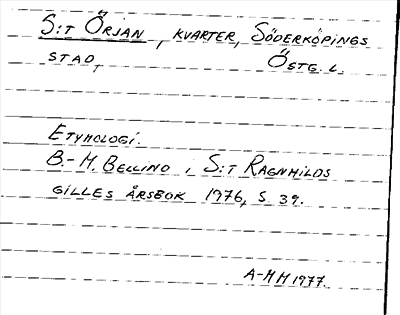 S:T ÖRJAN, KVARTER, SÖDERKÖPINGS
STAD, ÖSTG. L.
ETYMOLOGI.
B.-M. BELLINO, S:T RAGNHILDS
GILLES ÅRSBOK 1976, S. 39.
A-MH 1977.